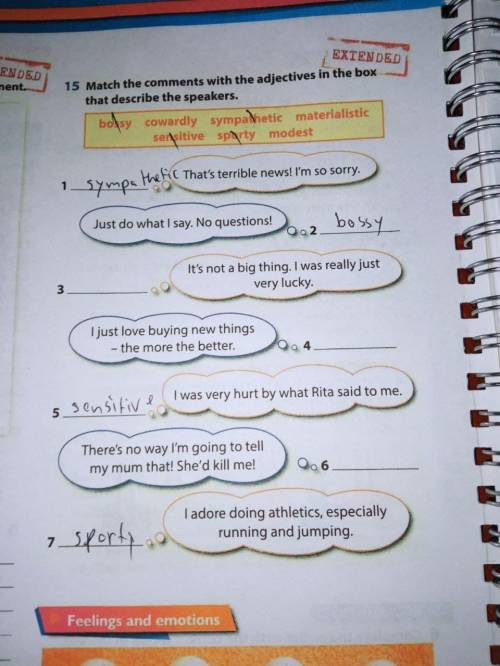 ENDED
ment.
EXTENDED
15 Match the comments with the adjectives in the box
that describe the speakers.
bossy cowardly sympathetic materialistic
sensitive sporty modest
1 sympathetic That's terrible news! I'm so sorry.
Just do what I say. No questions! 2 bossy
It's not a big thing. I was really just
very lucky.
3
I just love buying new things
– the more the better.
4
I was very hurt by what Rita said to me.
5 sensitive
There's no way I'm going to tell
my mum that! She'd kill me!
6
I adore doing athletics, especially
running and jumping.
7 sporty
Feelings and emotions